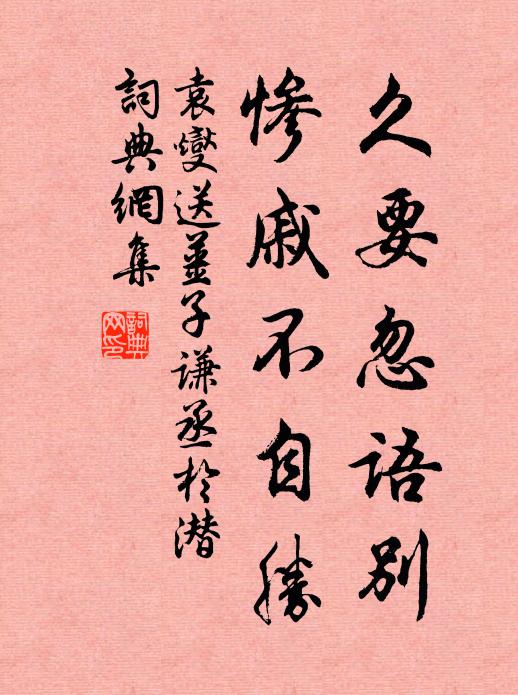 久要忽語別
慘戚不自勝
袁燮送姜子谦丞於潛
詞典網集
詞典網印